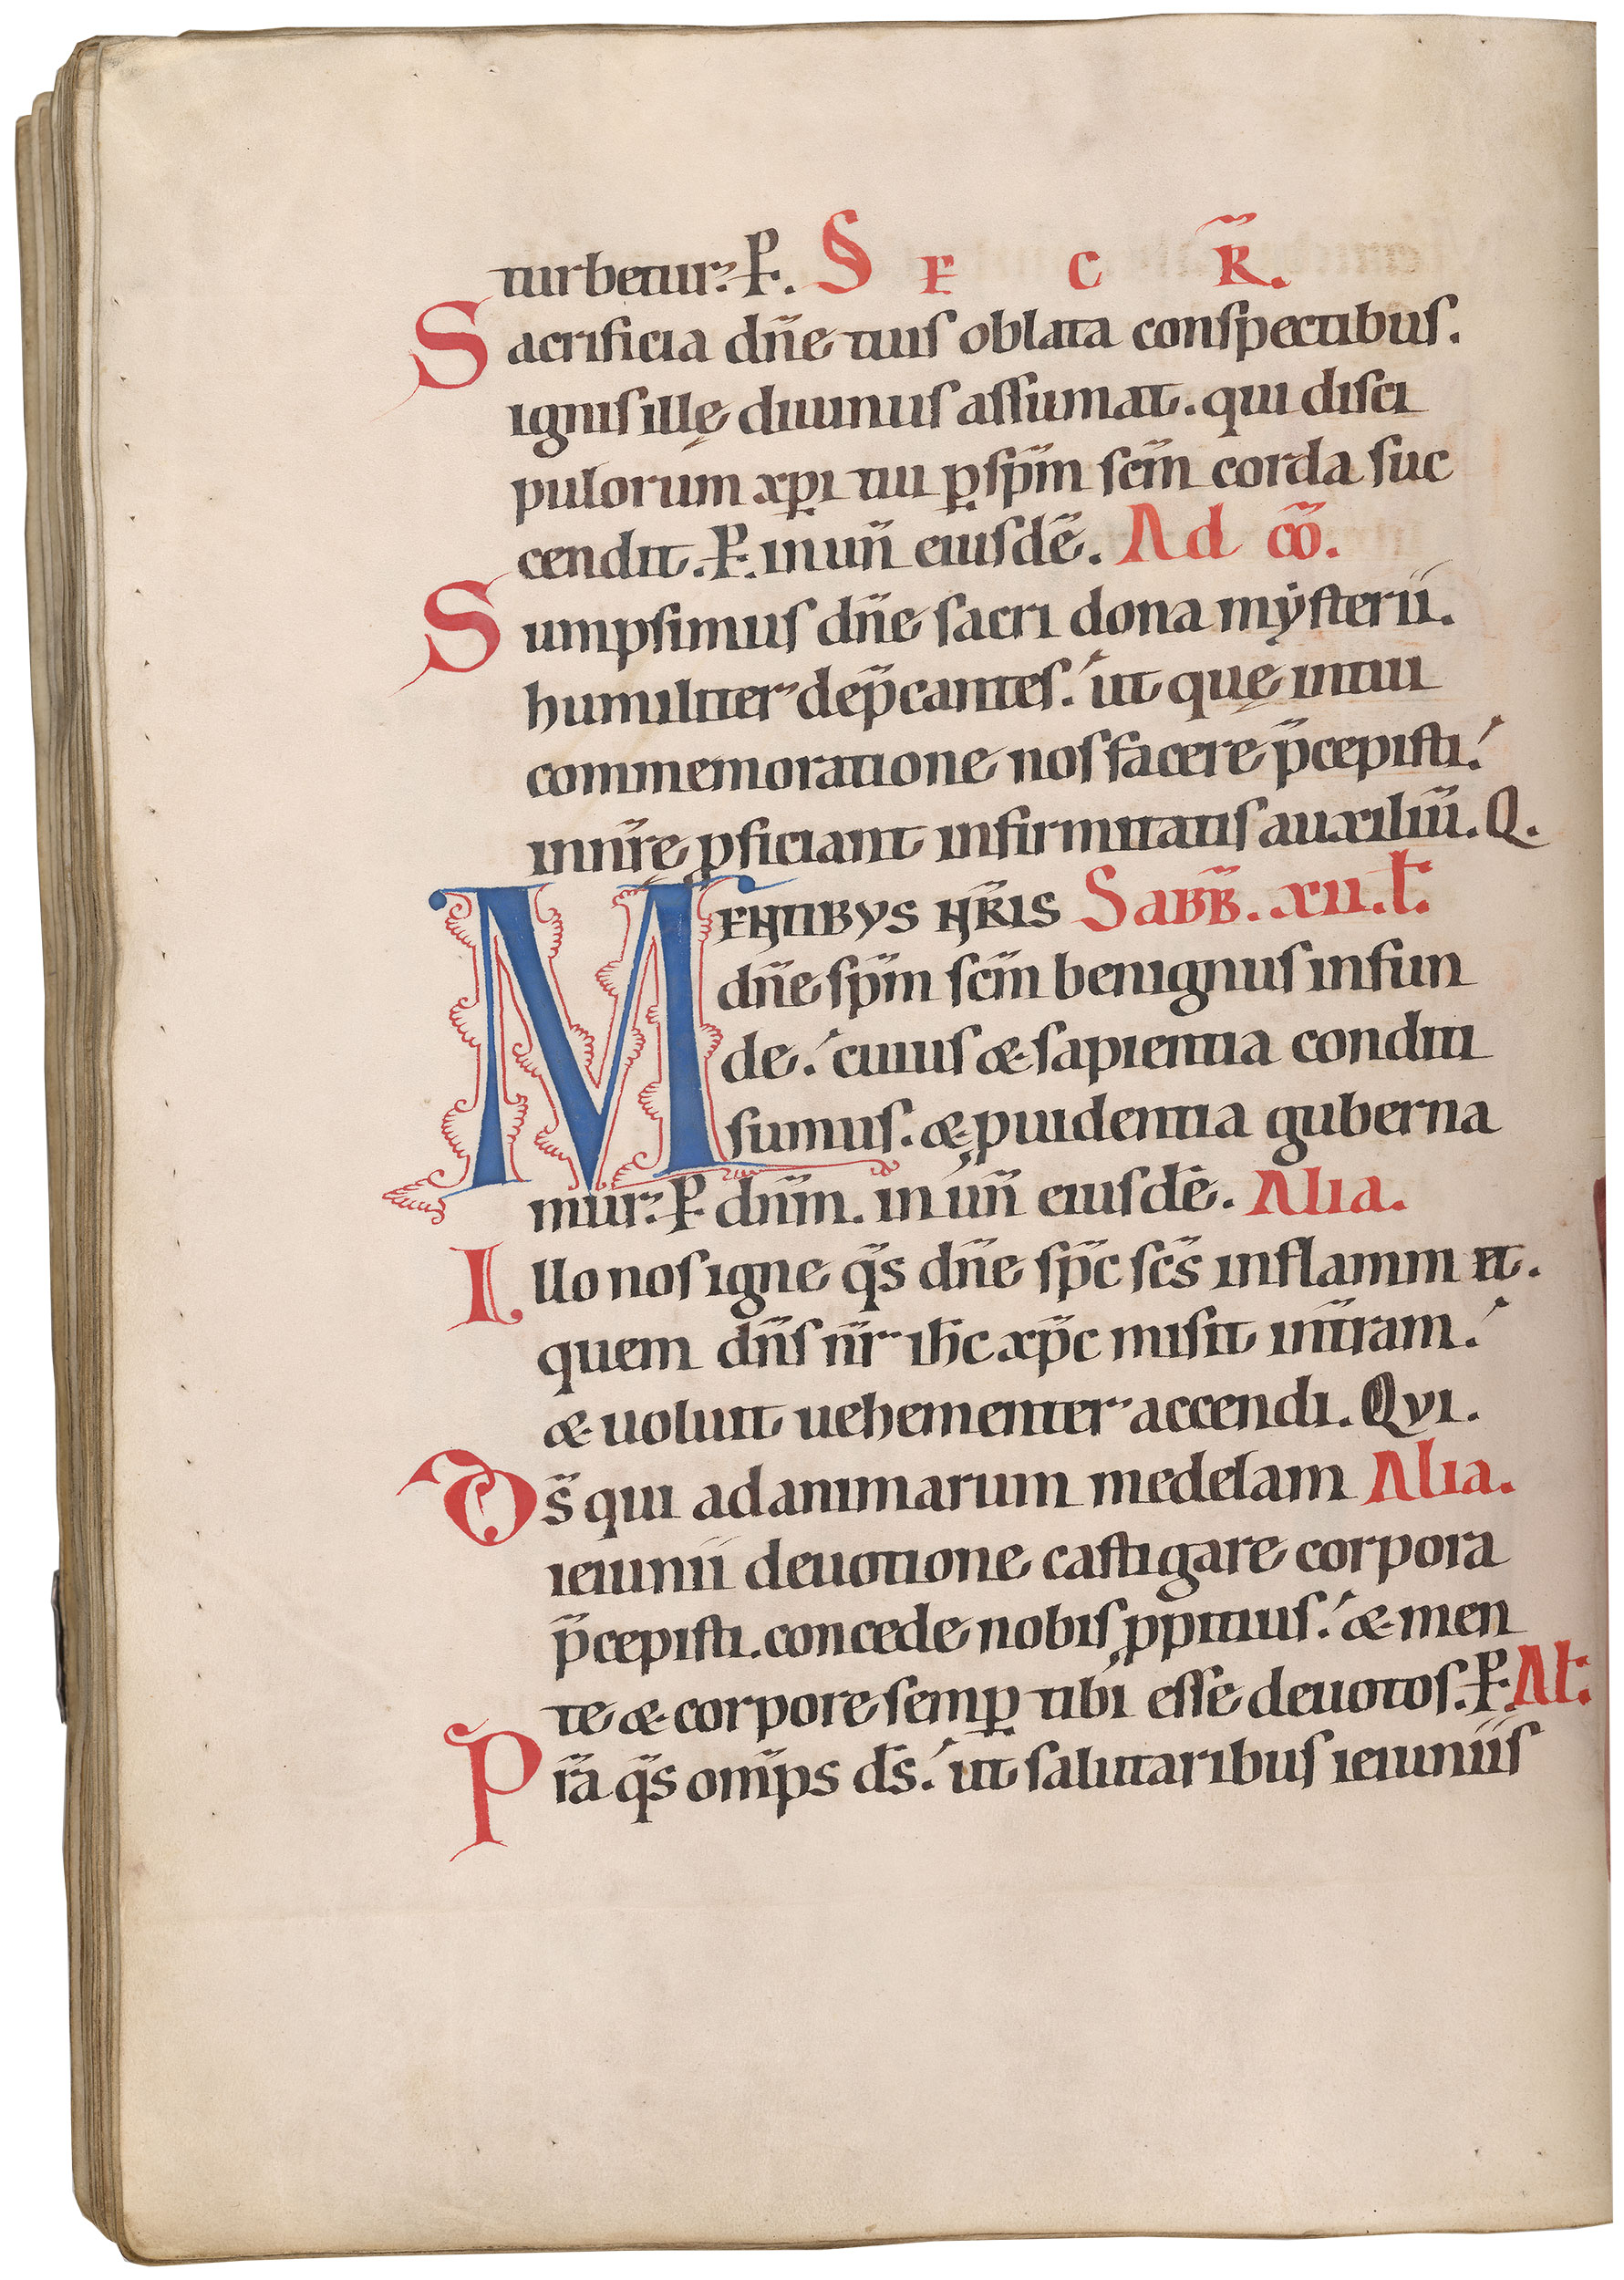 turbetur. P. SECR̄.
Sacrificia dn̄e tuis oblata conspectibus.
ignis ille diuinus assumat. qui disci
pulorum xp̄i tui ꝑ sp̄m sc̄m corda suc
cendit. P. in un̄ eiusdē. Ad cō.
Sumpsimus dn̄e sacri dona mẏsterii.
humiliter dep̄cantes. ut quę in tui
commemoratione nos facere p̄cepisti.
in nr̄ę ꝓficiant infirmitatis auxiliū. Q.
MENTIBVS NR̄IS SaBB̄. xii. ł.
dn̄e sp̄m sc̄m benignus infun
de. cuius & sapientia conditi
sumus. & ꝓuidentia guberna
mur. P. dn̄m. in un̄ eiusdē. Alia.
Illo nos igne q̄s dn̄e sp̄c sc̄s inflammet.
quem dn̄s nr̄ ih̄c xp̄c misit in tr̄am.
& uoluit uehementer accendi. Qvi.
Ds̄ qui ad animarum medelam Alia.
ieiunii deuotione castigare corpora
p̄cepisti. concede nobis ꝓpitius. & men
te & corpore semꝑ tibi esse deuotos. P. Al.
Pr̄a q̄s om̄ps ds̄. ut salutaribus ieiuniis